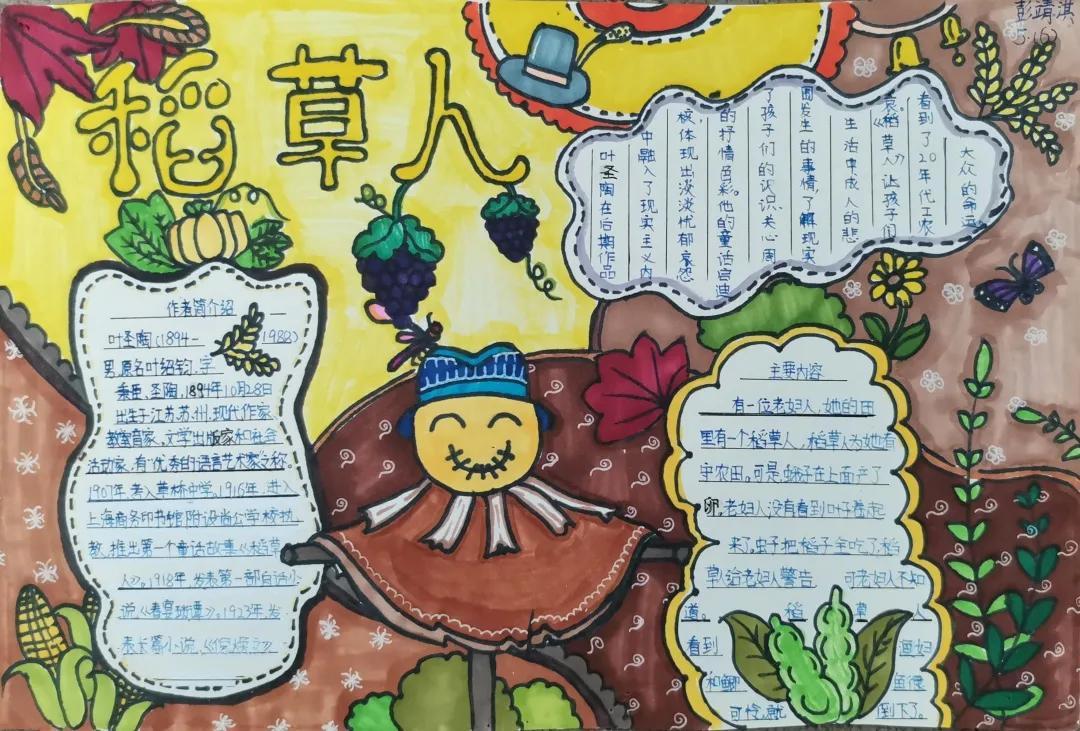 稻草人
彭靖淇
5.(6)
作者简介绍
叶圣陶(1894-1988)
男,原名叶绍钧,字
秉臣、圣陶,1894年10月28日
出生于江苏苏州,现代作家、
教育家、文学出版家和社会
活动家,有“优秀的语言艺术家”之称。
1907年,考入草桥中学。1916年,进入
上海商务印书馆附设尚公学校执
教,推出第一个童话故事《稻草
人》。1918年,发表第一部白话小
说《春宴琐谭》。1923年,发
表长篇小说《倪焕之》
叶圣陶在后期作品
中融入了现实主义内
核体现出淡淡忧郁哀怨
的抒情色彩。他的童话启迪
了孩子们的认识关心周
围发生的事情,了解现实
生活中成人的悲
哀。《稻草人》让孩子们
看到了20年代工农
大众的命运
主要内容
有一位老妇人,她的田
里有一个稻草人,稻草人为她看
守农田。可是,蛾子在上面产了
卵,老妇人没有看到叶子卷起
来了。虫子把稻子全吃了,稻
草给老妇人警告 可老妇人不知
道。 稻 草 人
看到 渔妇
和鲫 鱼便
可怜,就 倒下了。